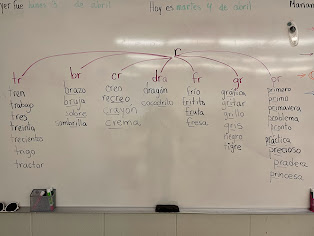 ayer fue lunes 3 de abril
Hoy es martes 4 de abril
Mañana
r
tr
tren
trabajo
tres
treinta
trescientos
trigo
tractor
br
brazo
bruja
sobre
sombrilla
cr
creo
recreo
crayón
crema
dra
dragón
cocodrilo
fr
frío
frijolito
fruta
fresa
gr
gráfica
gritar
grillo
gris
negro
tigre
pr
primero
primo
primavera
problema
pronto
práctica
precioso
pradera
princesa